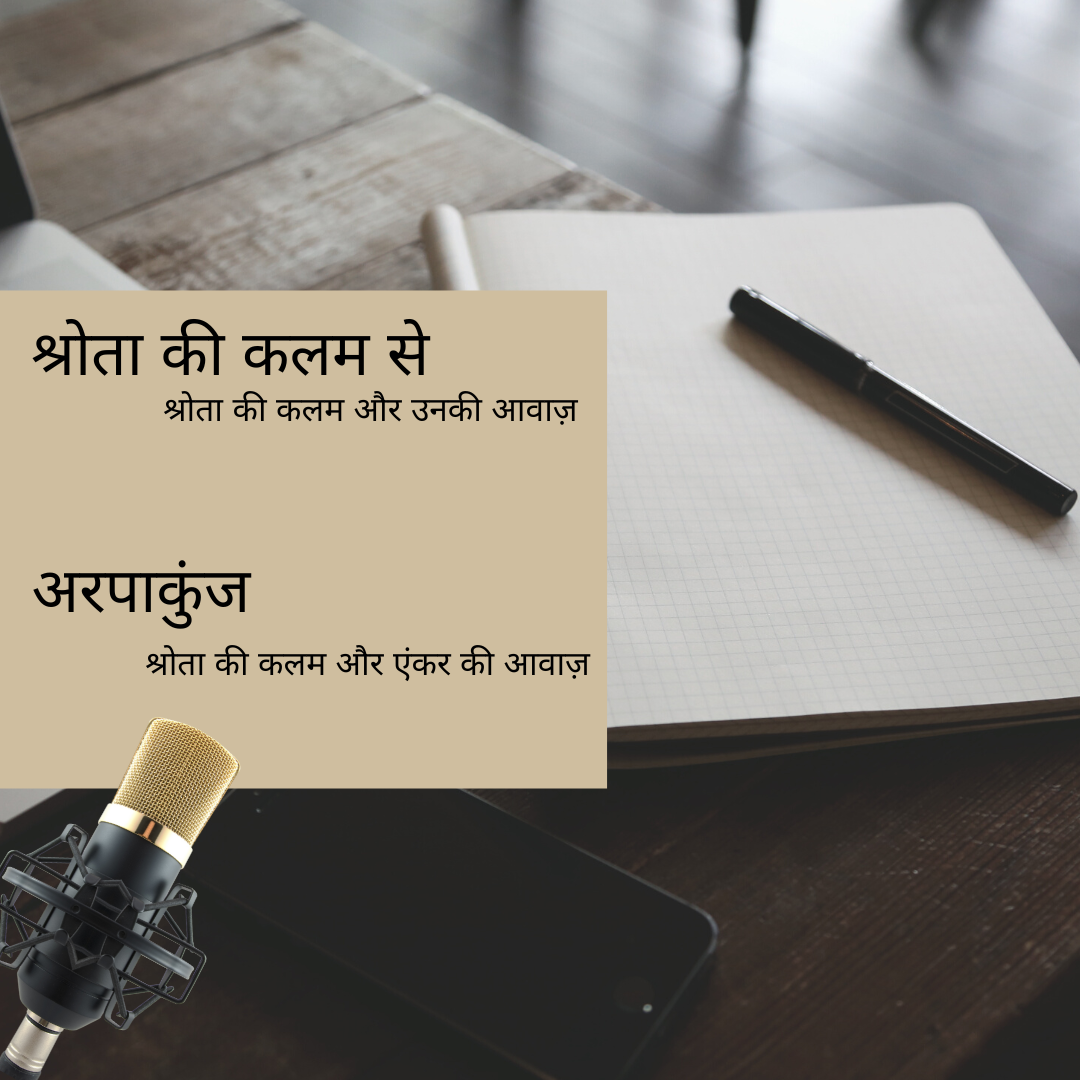 श्रोता की कलम से
श्रोता की कलम और उनकी आवाज़
अरपाकुंज
श्रोता की कलम और एंकर की आवाज़